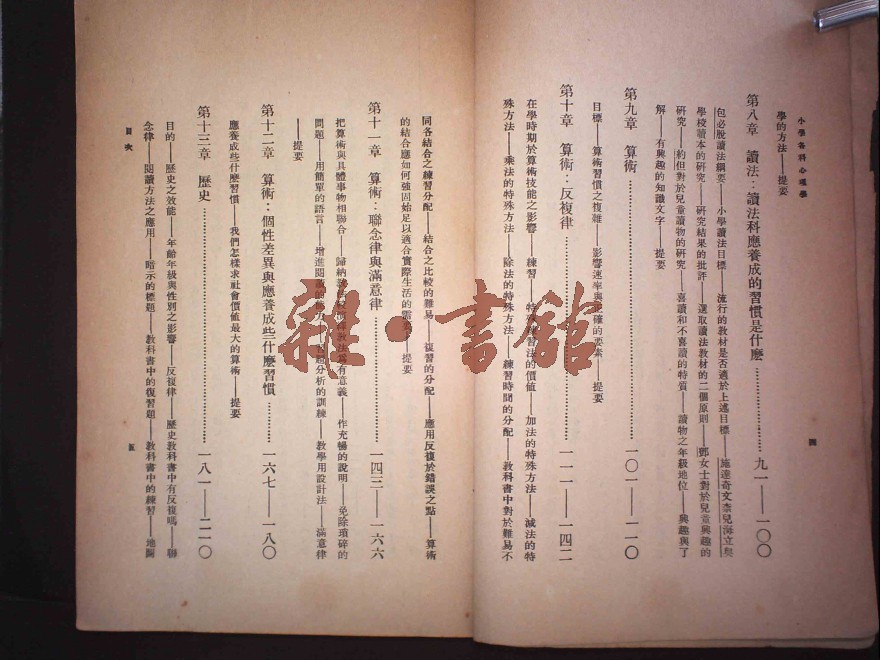 小學各科心理學
四
學的方法——提要
第八章　讀法：讀法科應養成的習慣是什麽…………九一——一〇〇
包必脫讀法綱要——小學讀法目標——流行的教材是否適於上述目標——施達奇文柰兒海立與
學校讀本的研究——研究結果的批評——選取讀法教材的二個原則——鄧女士對於兒童興趣的
研究——約但對於兒童讀物的研究——喜讀和不喜讀的特質——讀物之年級地位——興趣與了
解——有興趣的知識文字——提要
第九章　算術…………一〇一——一一〇
目標——算術習慣之複雜——影響速率與正確的要素——提要
第十章　算術：反複律…………一一一——一四二
在學時期於算術技能之影響——練習——特殊練習法的價值——加法的特殊方法——減法的特
殊方法——乘法的特殊方法——除法的特殊方法——練習時間的分配——教科書中對於難易不
同各結合之練習分配——結合之比較的難易——複習的分配——應用反複於錯誤之點——算術
的結合應如何強固始足以適合實際生活的需要——提要
第十一章　算術：聯念律與滿意律…………一四三——一六六
把算術與具體事物相聯合——歸納教法較演繹教法為有意義——作充暢的說明——免除瑣碎的
問題——用簡單的語言——增進閱讀的能力——問題分析的訓練——教學用設計法——滿意律
——提要
第十二章　算術：個性差異與應養成些什麽習慣…………一六七——一八〇
應養成些什麽習慣——我們怎樣求社會價值最大的算術——提要
第十三章　歷史…………一八一——二一〇
目的——歷史之效能——年齡年級與性別之影響——反複律——歷史教科書中有反複嗎——聯
念律——閱讀方法之應用——暗示的標題——教科書中的復習題——教科書中的練習——地圖
目次
五
雜·書館